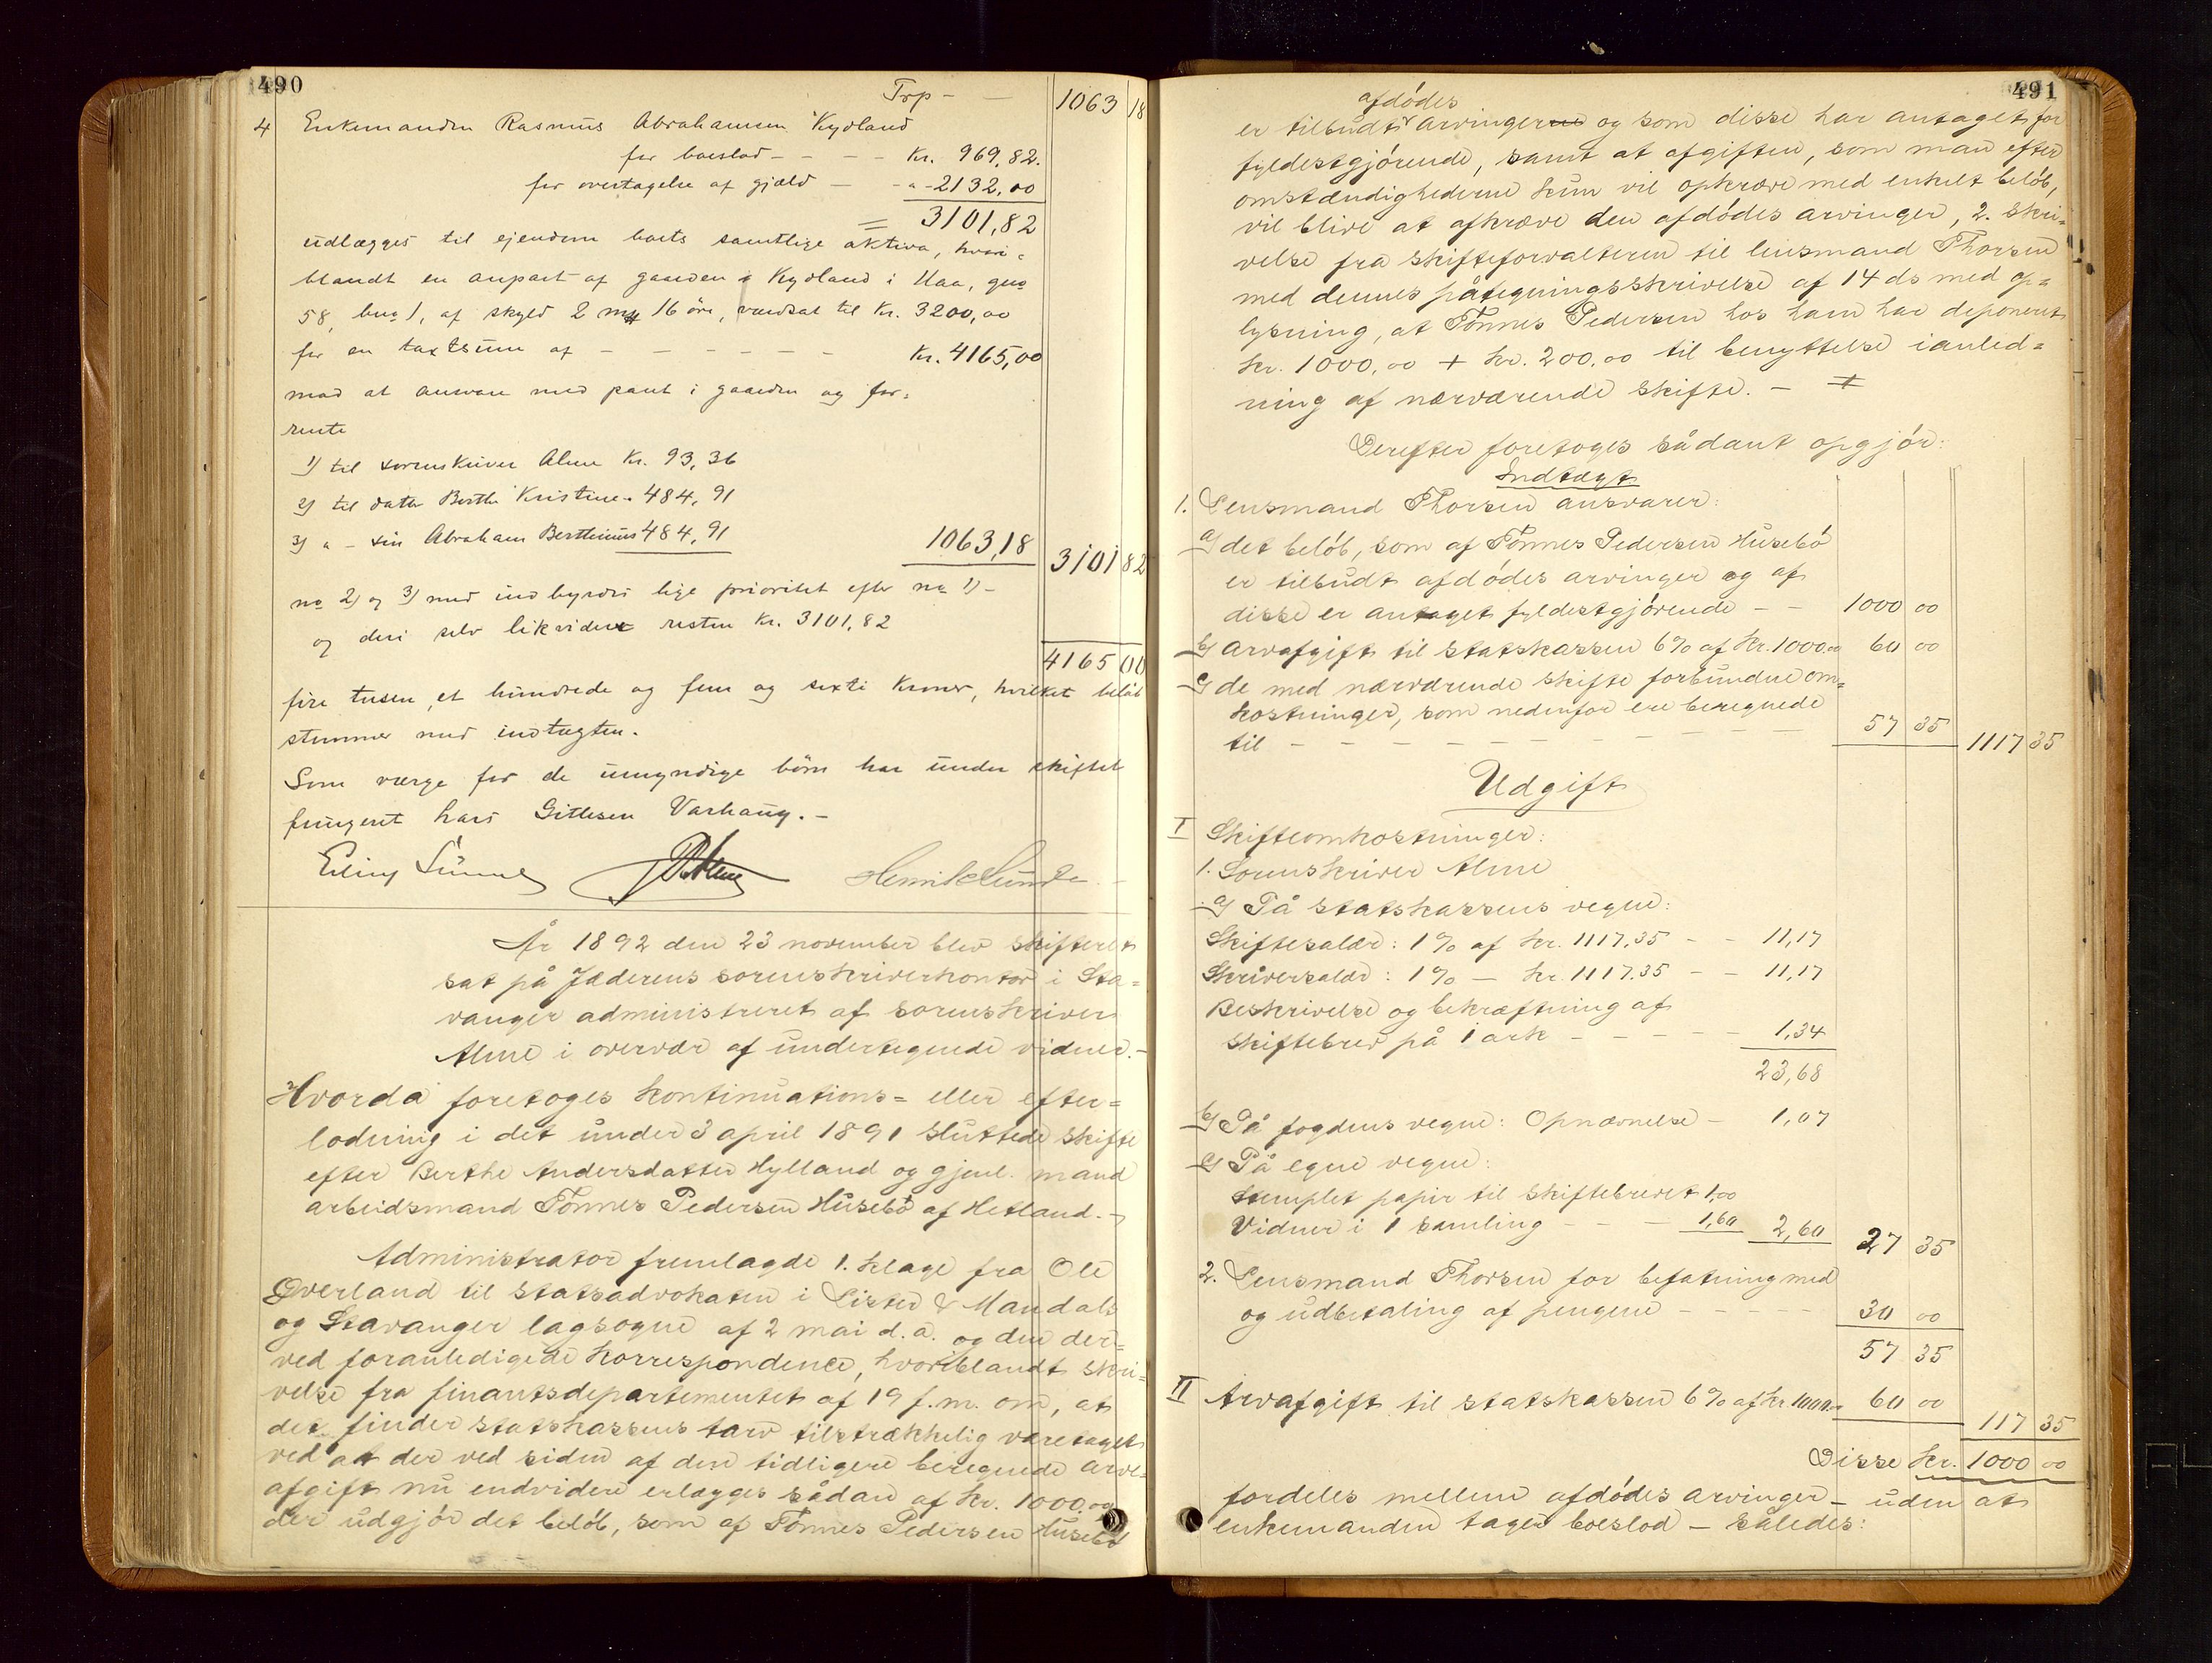 490
Trp - - 1063 18
4 Enkemanden Rasmus Abrahamsen Kydland
for boeslod - - - - Kr. 969,82.
for overtagelse af gjæld - - " - 2132,00
= 3101,82
udlægges til ejendom boets samtlige aktiva, hvori-
blandt en anpart af gaarden Kydland i Haa, gno
58, bno 1, af skyld 2 mk 16 øre, værdsat til Kr. 3200,00
for en taxtsum af - - - - - - Kr. 4165,00
mod at ansvare med pant i gaarden og for-
rente
1) til sorenskriver Alme Kr. 93,36
2) til datter Berthe Kristine " 484,91
3) " - søn Abraham Berthinius 484,91 1063,18 3101 82
no 2) og 3) med indbyrdes lige prioritet efter no 1) -
og deri selv likvidere resten Kr. 3101,82
4165 00
fire tusen, et hundrede og fem og sexti Kroner, hvilket beløb
stemmer med indtægten.
Som værge for de umyndige børn har under skiftet
fungeret Lars Gitlesen Varhaug. -
År 1892 den 23 november blev skifteret
sat på Jæderens sorenskriverkontor i Sta=
vanger administreret af sorenskriver
Alme i overvær af undertegnede vidner. -
Hvorda foretoges kontinuations= eller efter=
lodning i det under 3 april 1891 sluttede skifte
efter Berthe Andersdatter Hylland og gjenl. mand
arbeidsmand Tønnes Pedersen Husebø af Hetland. -
Administrator fremlagde 1. klage fra Ole
Øverland til statsadvokaten i Lister & Mandals
og Stavanger lagsogne af 2 mai d.a. og den der=
ved foranledigede korrespondence, hvoriblandt skri=
velse fra finantsdepartementet af 19 f.m. om, at
det finder statskassens tarv tilstrækkelig varetaget
ved at der ved siden af den tidligere beregnede arve=
afgift nu endvidere erlægges sådan af Kr. 1000,00
der udgjør det beløb, som af Tønnes Pedersen Husebø
491
afdødes
er tilbudt arvingerne og som disse har antaget for
fyldestgjørende, samt at afgiften, som man efter
omstændighederne kun vil opkræve med enkelt beløb,
vil blive at afkræve den afdødes arvinger, 2. skri=
velse fra skifteforvalteren til lensmand Thorsen
med dennes påtegningsskrivelse af 14 ds med op=
lysning, at Tønnes Pedersen hos ham har deponeret
kr. 1000,00 + kr. 200,00 til benyttelse i anled=
ning af nærværende skifte. -
Derefter foretoges sådant opgjør:
Indtægt
1. Lensmand Thorsen ansvarer:
a) det beløb, som af Tønnes Pedersen Husebø
er tilbudt afdødes arvinger og af
disse er antaget fyldestgjørende - - 1000 00
b) arvafgift til statskassen 6% af Kr. 1000,00 60 00
c) de med nærværende skifte forbundne om=
kostninger, som nedenfor ere beregnede
til - - - - - - - - - - 57 35 1117 35
Udgift
I Skifteomkostninger:
1. Sorenskriver Alme
a) På statskassens vegne:
Skiftesalær: 1% af kr. 1117.35 - - 11,17
Skriversalær: 1% - kr. 1117.35 - - 11,17
Beskrivelse og bekræftning af
skiftebrev på 1 ark - - - - 1,34
23,68
b) På fogdens vegne: Opnævnelse - 1,07
c) På egne vegne:
stemplet papir til skiftebrevet 1,00
Vidner i 1 samling - - - 1,60 2,60 27 35
2. Lensmand Thorsen for befatning med
og udbetaling af pengene - - - - 30 00
57 35
II Arvafgift til statskassen 6% af kr 1000,00 60 00 117 35
Disse kr. 1000 00
fordeles mellem afdødes arvinger - uden at
enkemanden tager boeslod - således: